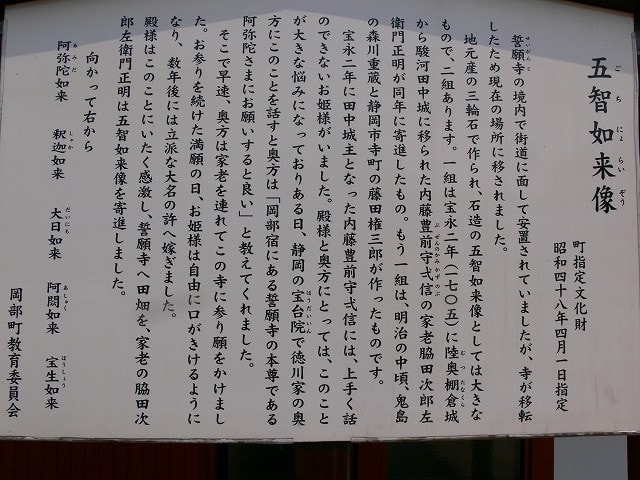 五智如来像
ごちにょらいぞう
町指定文化財
昭和四十八年四月一日指定
誓願寺の境内で街道に面して安置されていましたが、寺が移転
せいがん
したため現在の場所に移されました。
地元産の三輪石で作られ、石造の五智如来像としては大きな
もので、二組あります。一組は宝永二年(一七〇五)に陸奥棚倉城
むつたなくら
から駿河田中城に移られた内藤豊前守弌信の家老脇田次郎左
ぶぜんのかみかずのぶ
衛門正明が同年に寄進したもの。もう一組は、明治の中頃、鬼島
の森川重蔵と静岡市寺町の藤田権三郎が作ったものです。
宝永二年に田中城主となった内藤豊前守弌信には、上手く話
のできないお姫様がいました。殿様と奥方にとっては、このこと
が大きな悩みになっておりある日、静岡の宝台院で徳川家の奥
ほうだいいん
方にこのことを話すと奥方は「岡部宿にある誓願寺の本尊である
阿弥陀さまにお願いすると良い」と教えてくれました。
そこで早速、奥方は家老を連れてこの寺に参り願をかけまし
た。お参りを続けた満願の日、お姫様は自由に口がきけるように
なり、数年後には立派な大名の許へ嫁ぎました。
殿様はこのことにいたく感激し、誓願寺へ田畑を、家老の脇田次
郎左衛門正明は五智如来像を寄進しました。
向かって右から
阿弥陀如来 釈迦如来 大日如来 阿閦如来 宝生如来
あみだ しゃか だいにち あしゅく ほうしょう
岡部町教育委員会